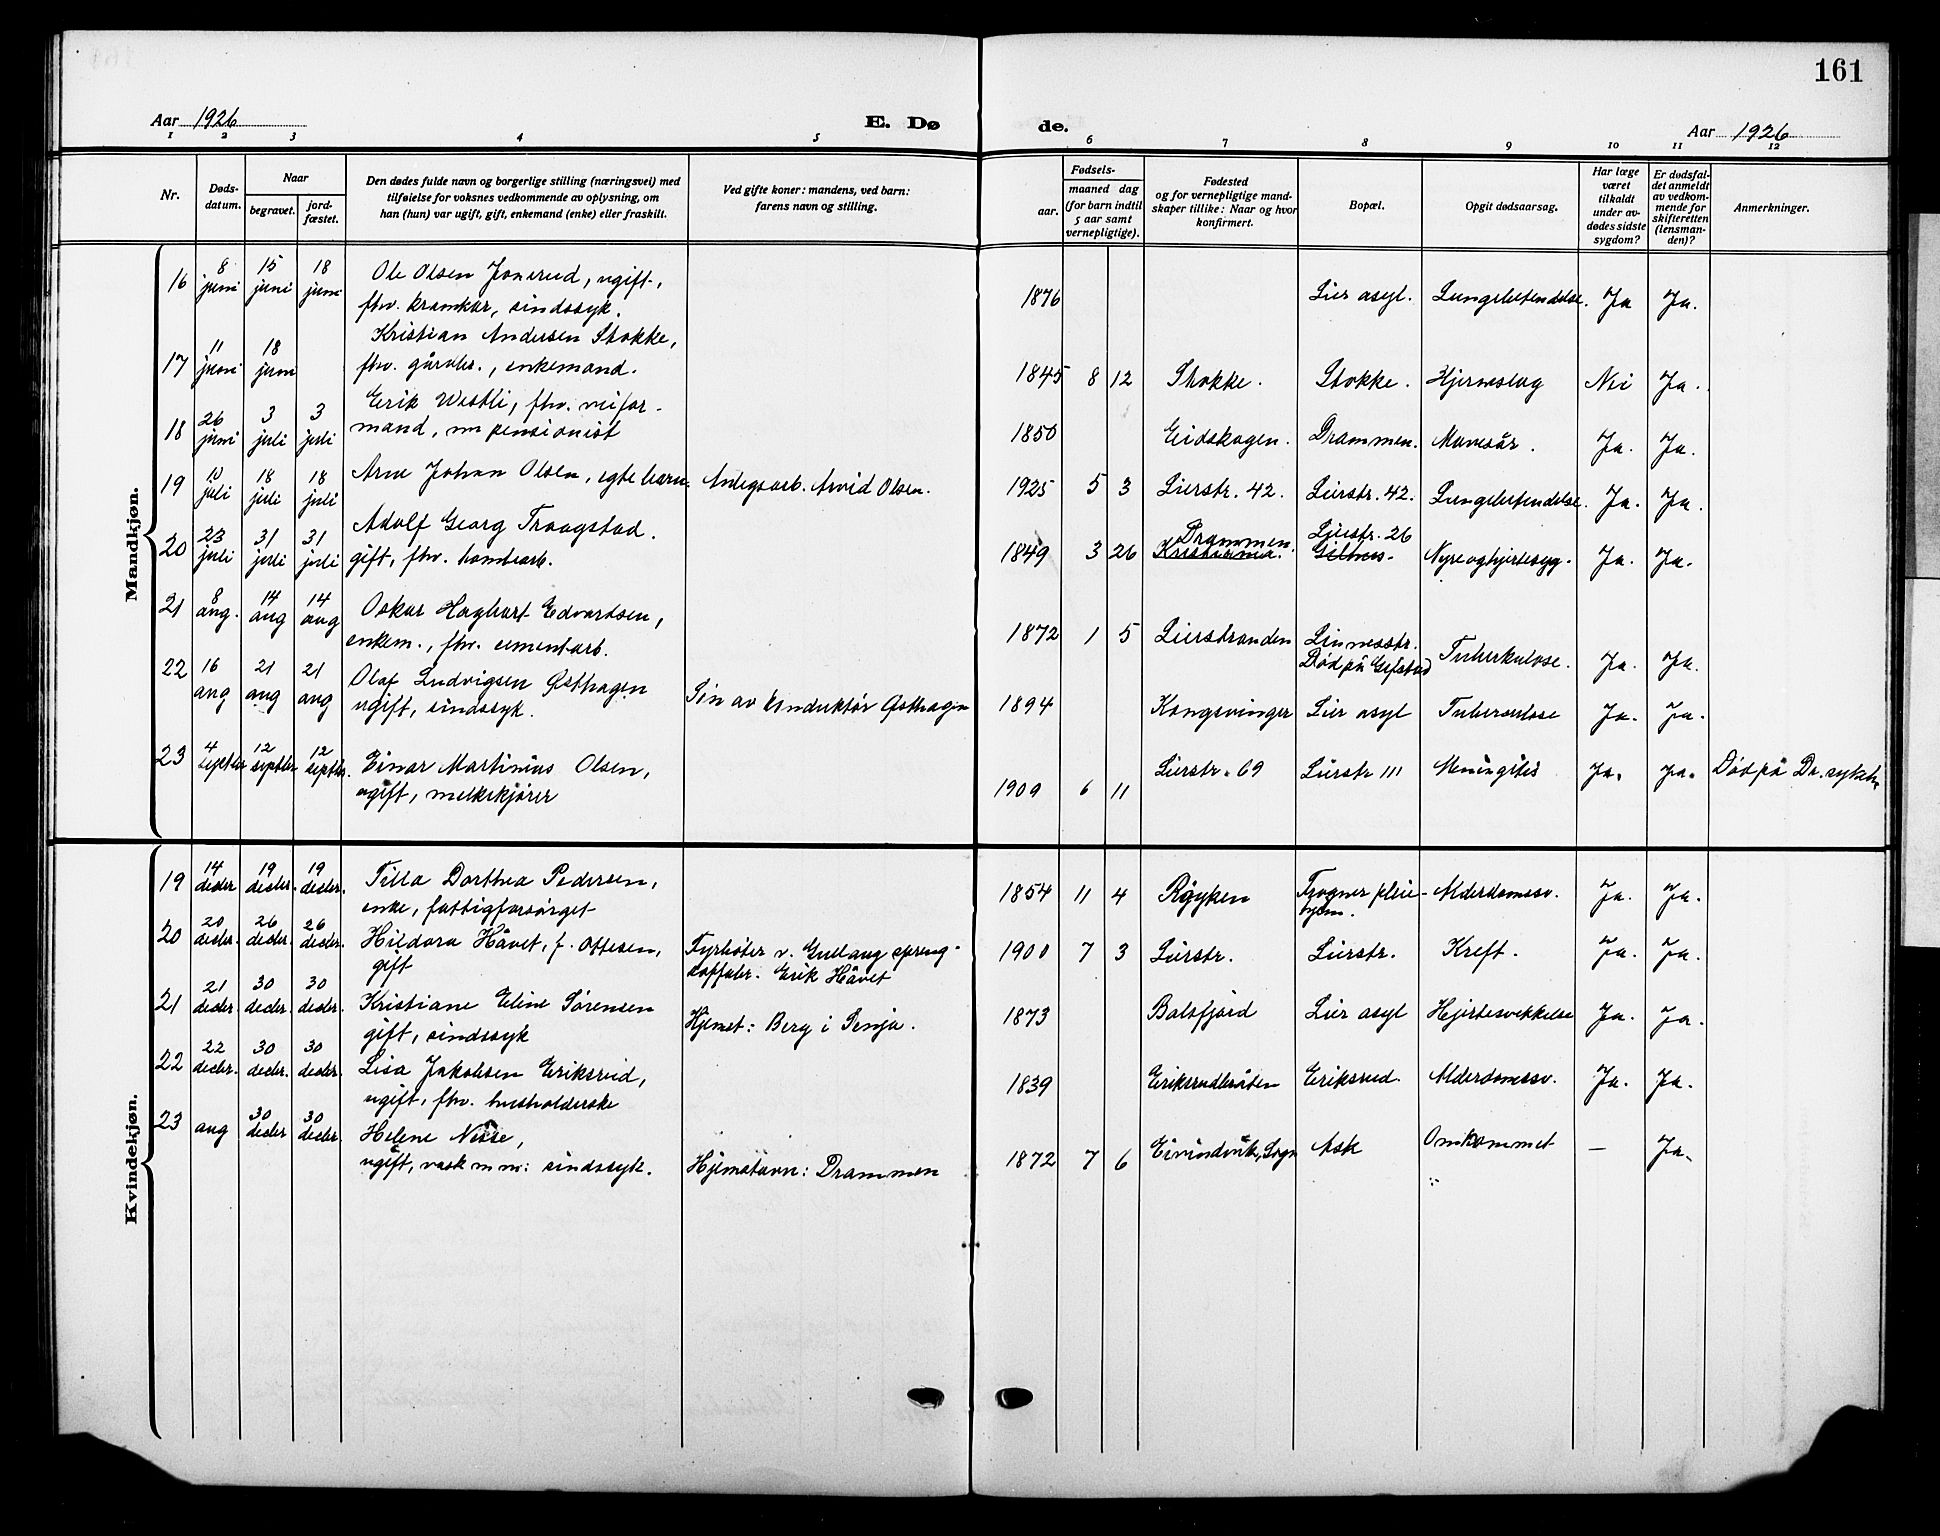 161
Aar 1926
E. Døde.
Aar 1926
1 2 3 4 5 6 7 8 9 10 11 12
Nr.
Døds-
datum.
Naar
begravet.
jord-
fæstet.
Den dødes fulde navn og borgerlige stilling (næringsvei) med
tilføielse for voksnes vedkommende av oplysning, om
han (hun) var ugift, gift, enkemand (enke) eller fraskilt.
Ved gifte koner: mandens, ved barn:
farens navn og stilling.
Fødsels-
aar.
maaned dag
(for barn indtil
5 aar samt
vernepligtige).
Fødested
og for vernepligtige mand-
skaper tillike: Naar og hvor
konfirmert.
Bopæl.
Opgit dødsaarsag.
Har læge
været
tilkaldt
under av-
dødes sidste
sygdom?
Er dødsfal-
det anmeldt
av vedkom-
mende for
skifteretten
(lensman-
den)?
Anmerkninger.
Mandkjøn.
16 8 juni 15 juni 18 juni Ole Olsen Jonsrud, ugift,
fhv. kramkar, sindssyk. 1876 Lier asyl. Lungebetendelse. Ja Ja.
17 11 juni 18 juni Kristian Andersen Stokke,
fhv. gårdbr., enkemand. 1845 8 12 Stokke. Stokke. Hjerneslag Nei Ja.
18 26 juni 3 juli 3 juli Erik Westli, fhv. veifor-
mand, nu pensionist 1850 Eidskogen. Drammen. Mavesår. Ja. Ja.
19 10 juli 18 juli 18 juli Arne Johan Olsen, egte barn. Anlegsarb. Arvid Olsen. 1925 5 3 Lierstr. 42. Lierstr. 42. Lungebetendelse. Ja. Ja.
20 23 juli 31 juli 31 juli Adolf Georg Trøogstad.
gift, fhv. tomtearb. 1849 3 26 Drammen. Kristiania. Lierstr. 26 Gilhus. Nyre og hjertesyg. Ja. Ja.
21 8 aug. 14 aug 14 aug Oskar Hagbart Edvardsen,
enkem., fhv. cementarb. 1872 1 5 Lierstranden Linnesstr.
Død på Gjfstad Tuberkulose. Ja. Ja.
22 16 aug 21 aug 21 aug Olaf Ludvigsen Østhagen
ugift, sindssyk. Søn av konduktør Østhagen 1894 Kongsvinger Lier asyl Tuberculose Ja. Ja.
23 4 septbr 12 septbr 12 septbr. Einar Martinius Olsen,
ugift, melkekjører 1909 6 11 Lierstr. 69 Lierstr 111 Meningites Ja. Ja. Død på Dr. sykeh.
Kvindekjøn.
19 14 decbr 19 decbr. 19 decbr. Tilla Dorthea Pedersen,
enke, fattigforsørget 1854 11 4 Røyken Frogner pleie-
hjem. Alderdomssv. Ja. Ja.
20 20 decbr. 26 decbr. 26 decbr. Hildora Håvet, f. Ottesen,
gift Fyrbøter v. Gullaug spreng-
stoffabr. Erik Håvet 1900 7 3 Lierstr. Lierstr. Kreft. Ja. Ja.
21 21 decbr. 30 decbr. 30 decbr. Kristiane Eline Sørensen
gift, sindssyk Hjemst: Berg i Senja. 1873 Balsfjord Lier asyl Hjertesvekkelse Ja. Ja.
22 22 decbr. 30 decbr. 30 decbr. Lisa Jakobsen Eriksrud,
ugift, fhv. husholderske 1839 Eriksrudbråten Eriksrud. Alderdomssv. Ja. Ja.
23 aug 30 decbr 30 decbr. Helene Nesse,
ugift, vask m m: sindssyk. Hjemstavn: Drammen 1872 7 6 Eivindvik, Sogn Ask Omkommet — Ja.